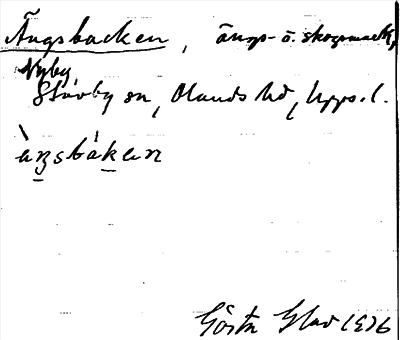 Ängsbacken, ängs- o. skogsmark,
Nyby
Stavby sn, Olands hd, Upps. l.
ὰŋsbákan
Gösta Glad 1926